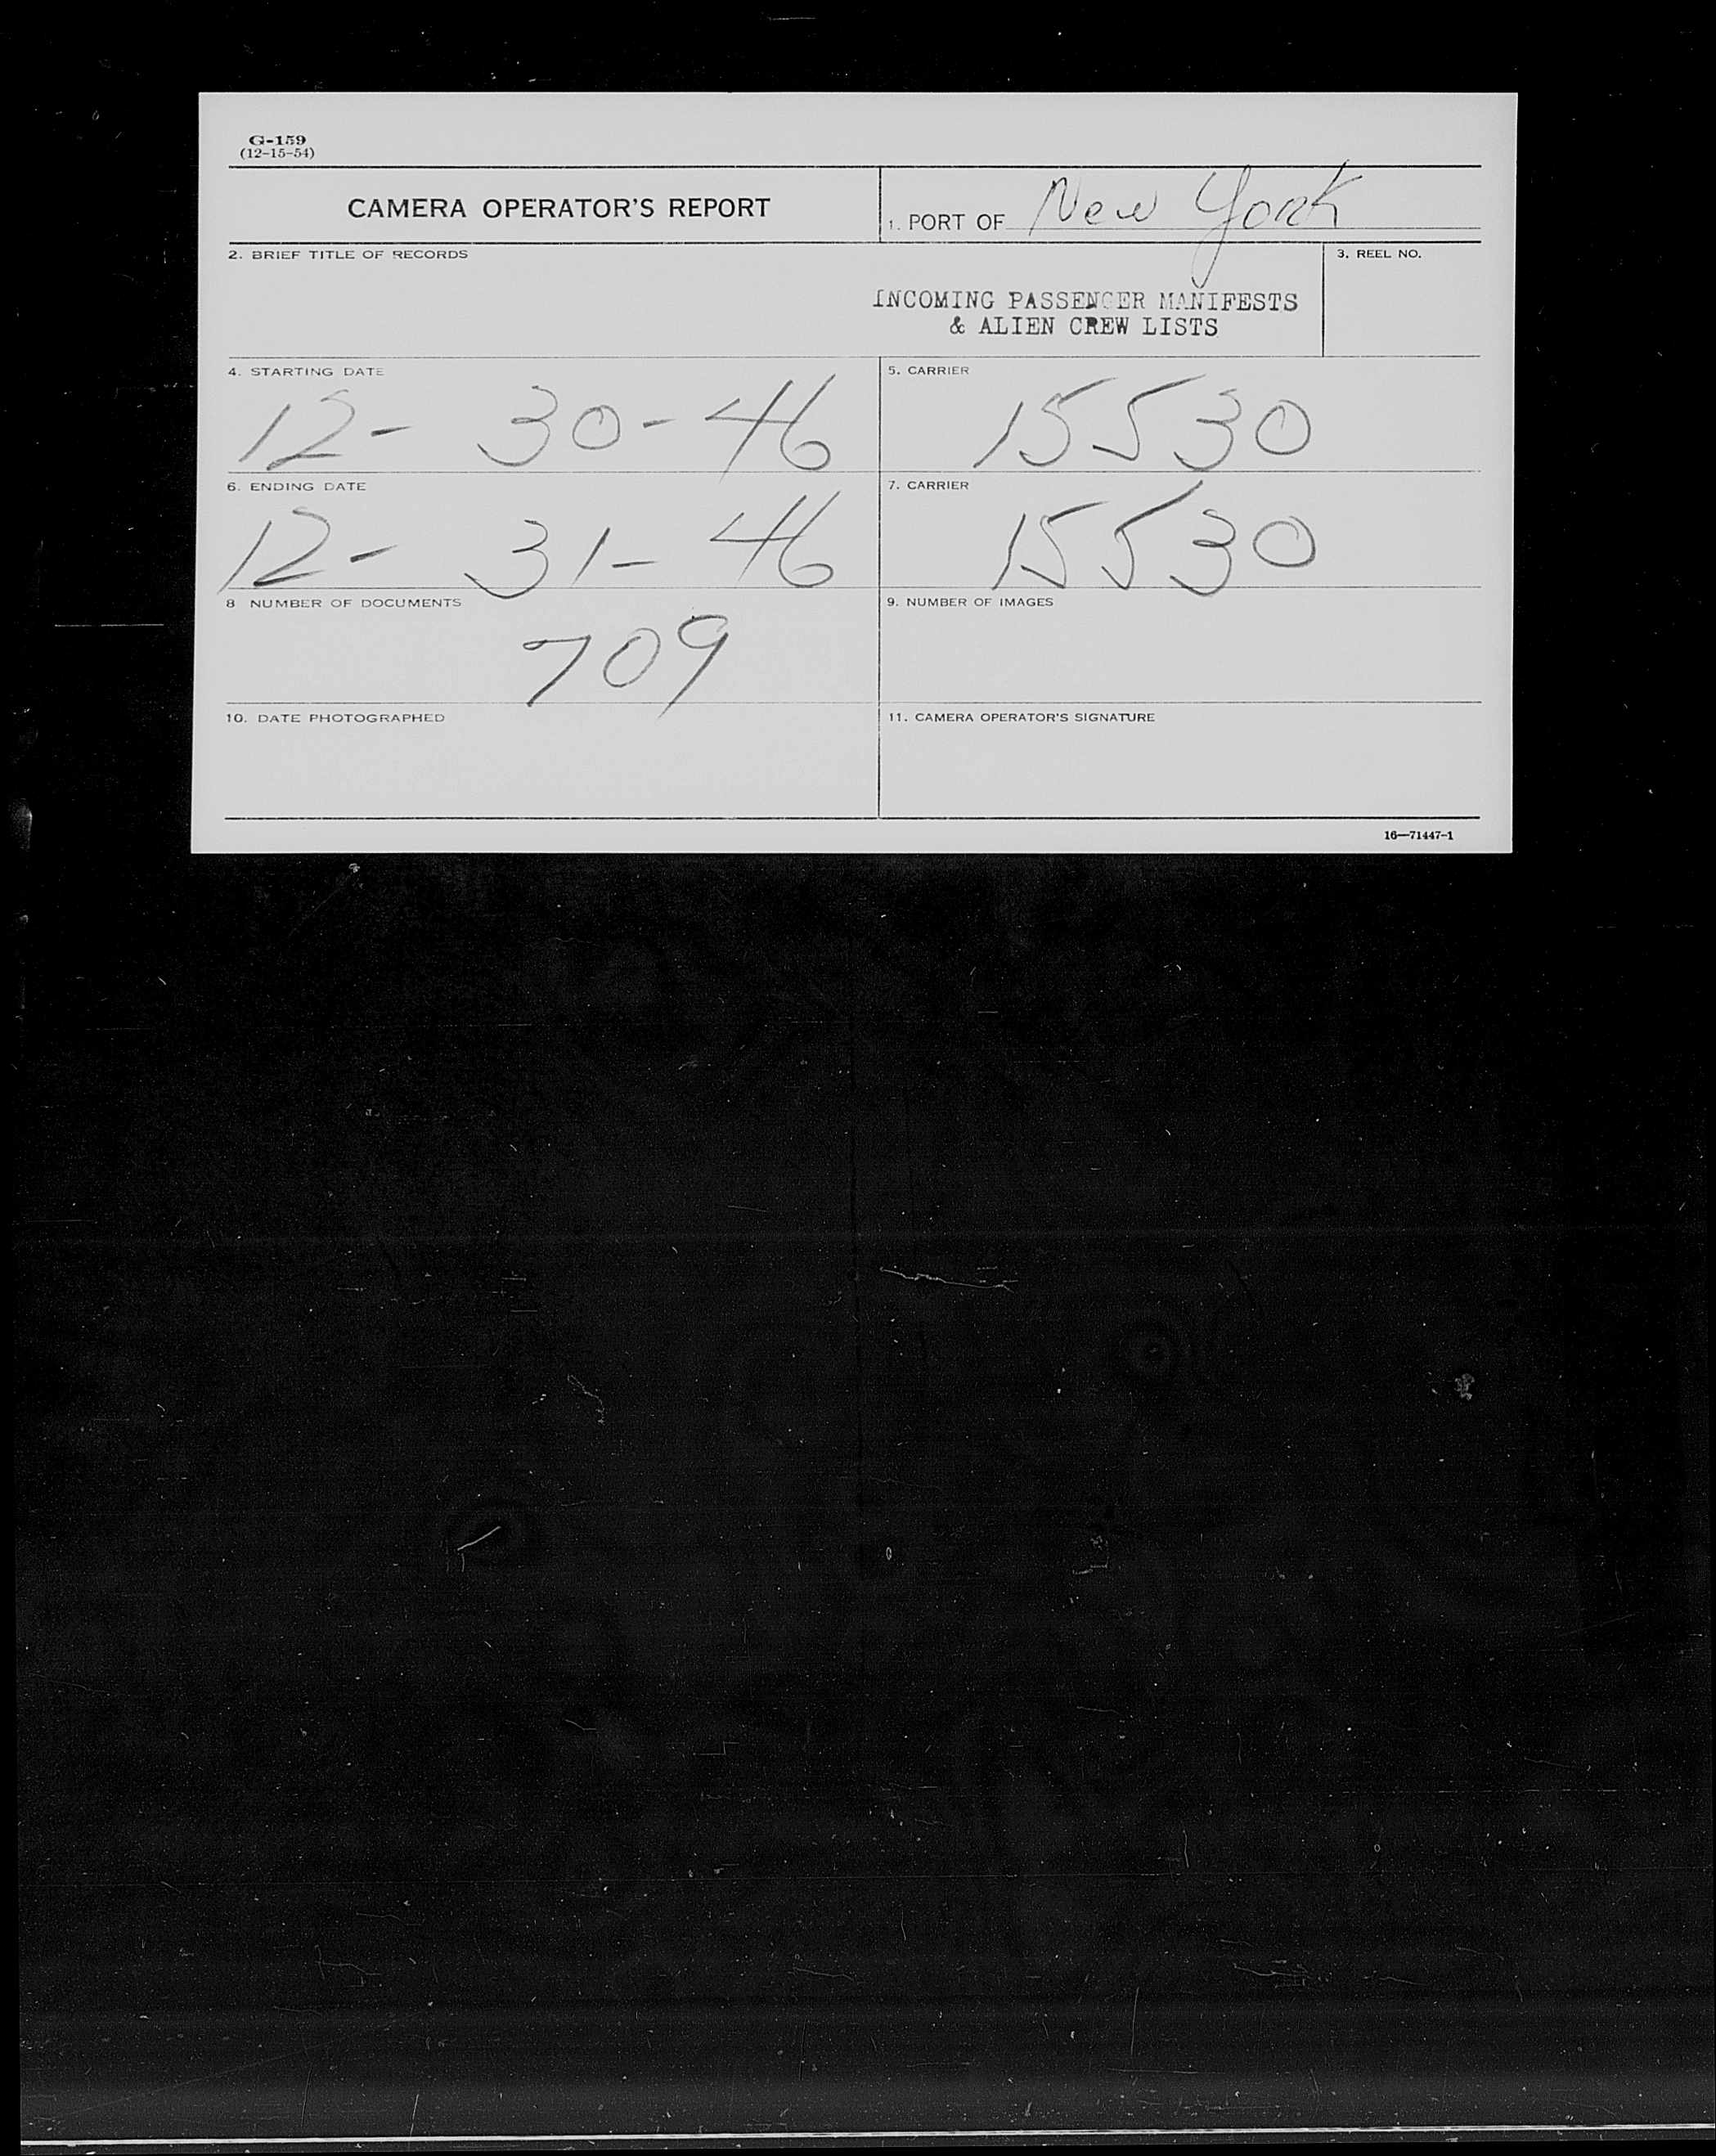 G-159
(12-15-54)
CAMERA OPERATOR'S REPORT
1. PORT OF New York
2. BRIEF TITLE OF RECORDS
3. REEL NO.
INCOMING PASSENGER MANIFESTS
& ALIEN CREW LISTS
4. STARTING DATE
12- 30-46
5. CARRIER
15530
6. ENDING DATE
12- 31-46
7. CARRIER
15530
8 NUMBER OF DOCUMENTS
709
9. NUMBER OF IMAGES
10. DATE PHOTOGRAPHED
11. CAMERA OPERATOR'S SIGNATURE
16—71447-1